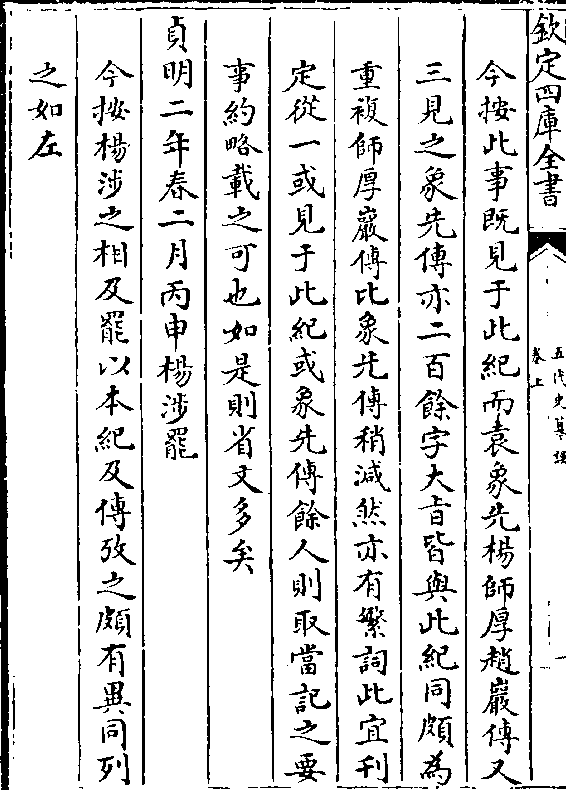 欽定四庫全書
五代史纂誤
卷上
今按此事既見于此紀而袁象先楊師厚趙巖傳又
三見之象先傳亦二百餘字大旨皆與此紀同頗為
重複師厚巖傳比象先傳稍減然亦有繁詞此宜刊
定從一或見于此紀或象先傳餘人則取當記之要
事約略載之可也如是則省文多矣
貞明二年春二月丙申楊涉罷
今按楊涉之相及罷以本紀及傳攷之頗有異同列
之如左